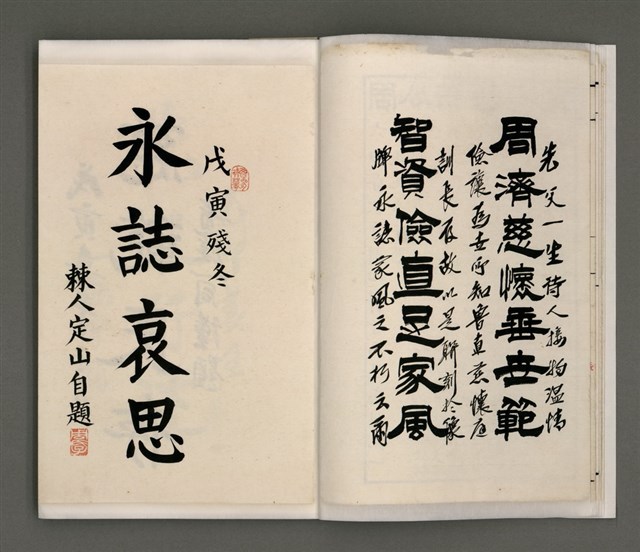 周濟慈懷垂世範
先父一生待人接物溫情
儉讓為世所知魯直慈懷庭
智資儉直足家風
訓長存故以是聯刻於篆
牌永誌家風之不朽云爾
戊寅殘冬
永誌哀思
棘人定山自題